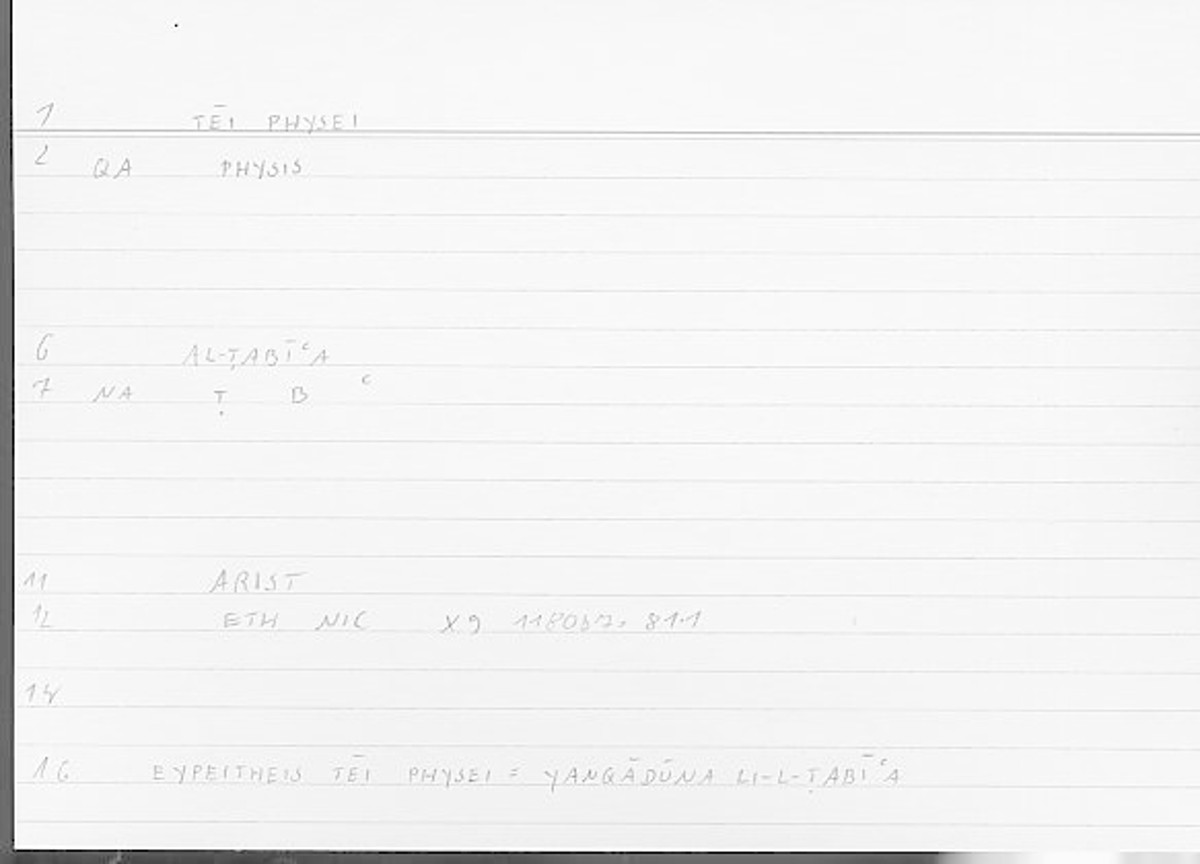 1 TĒI PHYSEI
2 QA PHYSIS
6 AL-ṬABĪʿA
7 NA Ṭ B ʿ
11 ARIST
12 ETH NIC X 9
14
16 EYPEITHEIS TĒI PHYSEI = YANQĀDŪNA LI-L-ṬABĪʿA